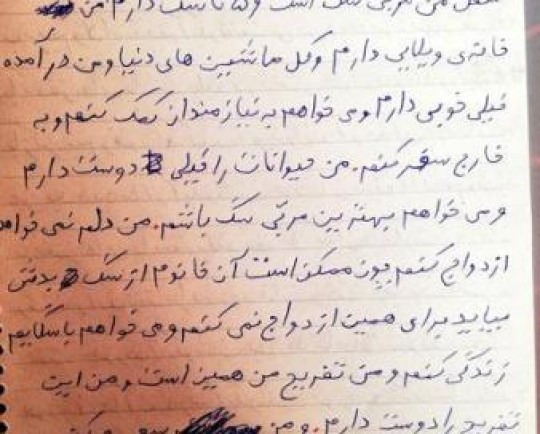 شغل من مربی سگ است و ۵ تا سگ دارم من
خانه‌ی ویلایی دارم و کل ماشین های دنیا و من درآمده
خیلی خوبی دارم و می خواهم به نیازمندان کمک کنم و به
خارج سفر کنم. من حیوانات را خیلی دوست دارم
و می خواهم بهترین مربی سگ باشم. من دلم نمی خواهد
ازدواج کنم چون ممکن است آن خانوم از سگ بدش
بیاید برای همین ازدواج نمی کنم و می خواهم با سگایم
زندگی کنم و من تفریح من همین است و من این
تفریح را دوست دارم. و من